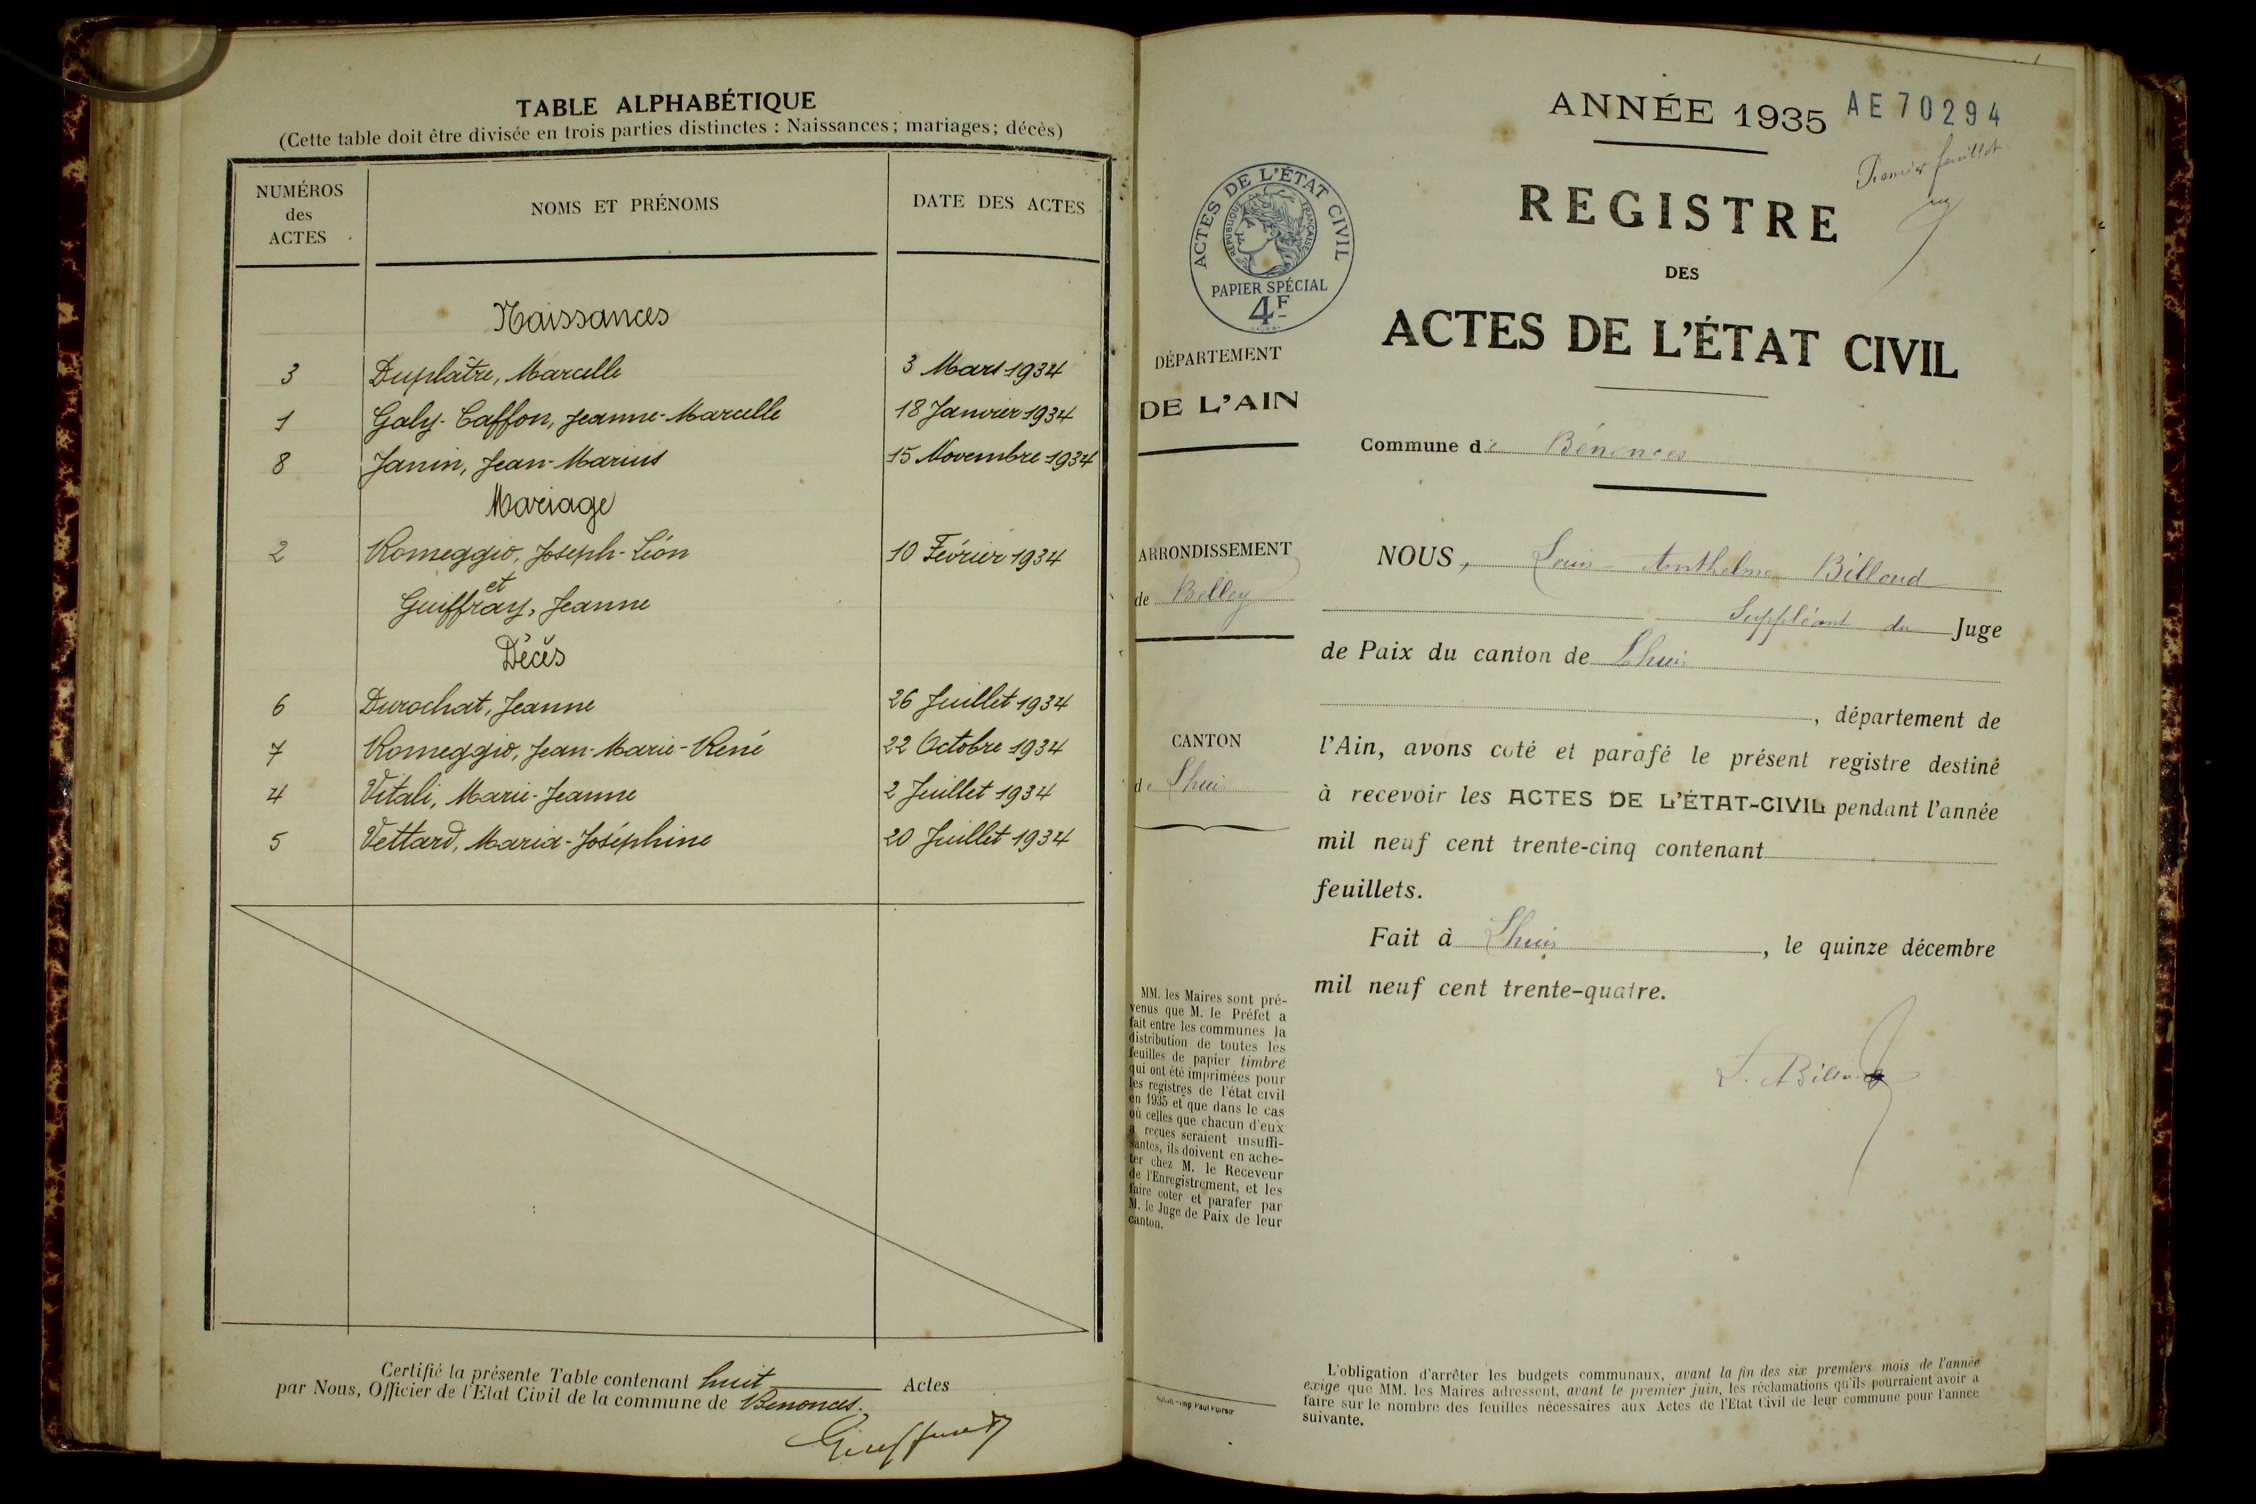 TABLE ALPHABÉTIQUE
(Cette table doit être divisée en trois parties distinctes : Naissances ; mariages ; décès)
NUMÉROS des ACTES NOMS ET PRÉNOMS DATE DES ACTES
Naissances
3 Duplâtre, Marcelle 3 Mars 1934
1 Galy-Caffon, Jeanne-Marcelle 18 Janvier 1934
8 Janin, Jean-Marius 15 Novembre 1934
Mariage
2 Romeggio, Joseph-Léon 10 Février 1934
et
Guiffray, Jeanne
Décès
6 Durochat, Jeanne 26 Juillet 1934
7 Romeggio, Jean-Marie-René 22 Octobre 1934
4 Vitali, Marie-Jeanne 2 Juillet 1934
5 Vettard, Maria-Joséphine 20 Juillet 1934
Certifié la présente Table contenant huit Actes
par Nous, Officier de l'Etat Civil de la commune de Benonces.
ANNÉE 1935 AE 70294
Premier feuillet
REGISTRE
DES
ACTES DE L'ÉTAT CIVIL
ACTES DE L'ÉTAT CIVIL
RÉPUBLIQUE FRANÇAISE
PAPIER SPÉCIAL
4F
DÉPARTEMENT
DE L'AIN
ARRONDISSEMENT
de Belley
CANTON
de Lhuis
MM. les Maires sont pré-
venus que M. le Préfet a
fait entre les communes la
distribution de toutes les
feuilles de papier timbré
qui ont été imprimées pour
les registres de l'état civil
en 1935 et que dans le cas
où celles que chacun d'eux
a reçues seraient insuffi-
santes, ils doivent en ache-
ter chez M. le Receveur
de l'Enregistrement, et les
faire coter et parafer par
M. le Juge de Paix de leur
canton.
Commune de Bénonces
NOUS, Louis-Anthelme Billoud
Suppléant du Juge
de Paix du canton de Lhuis
, département de
l'Ain, avons coté et parafé le présent registre destiné
à recevoir les ACTES DE L'ÉTAT-CIVIL pendant l'année
mil neuf cent trente-cinq contenant
feuillets.
Fait à Lhuis, le quinze décembre
mil neuf cent trente-quatre.
L. Billoud
L'obligation d'arrêter les budgets communaux, avant la fin des six premiers mois de l'année
exige que MM. les Maires adressent, avant le premier juin, les réclamations qu'ils pourraient avoir à
faire sur le nombre des feuilles nécessaires aux Actes de l'Etat Civil de leur commune pour l'année
suivante.